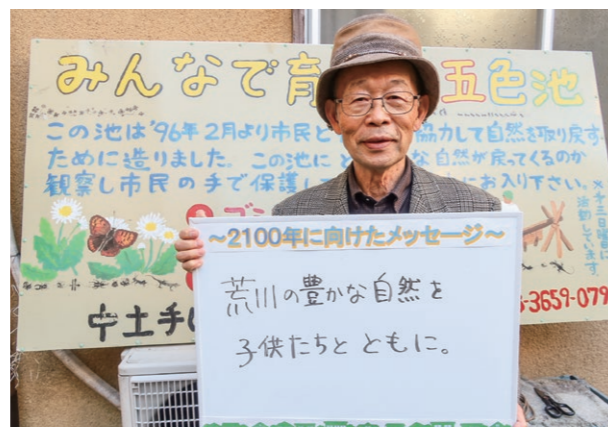 みんなで育
五色池
この池は'96年2月より市民と
協力して自然を取り戻す
ために造りました。この池に
な自然が戻ってくるのか
観察し市民の手で保護し
にお入り下さい。
活動しています。
3659-079
中土手
～2100年に向けたメッセージ～
荒川の豊かな自然を
子供たちと ともに。